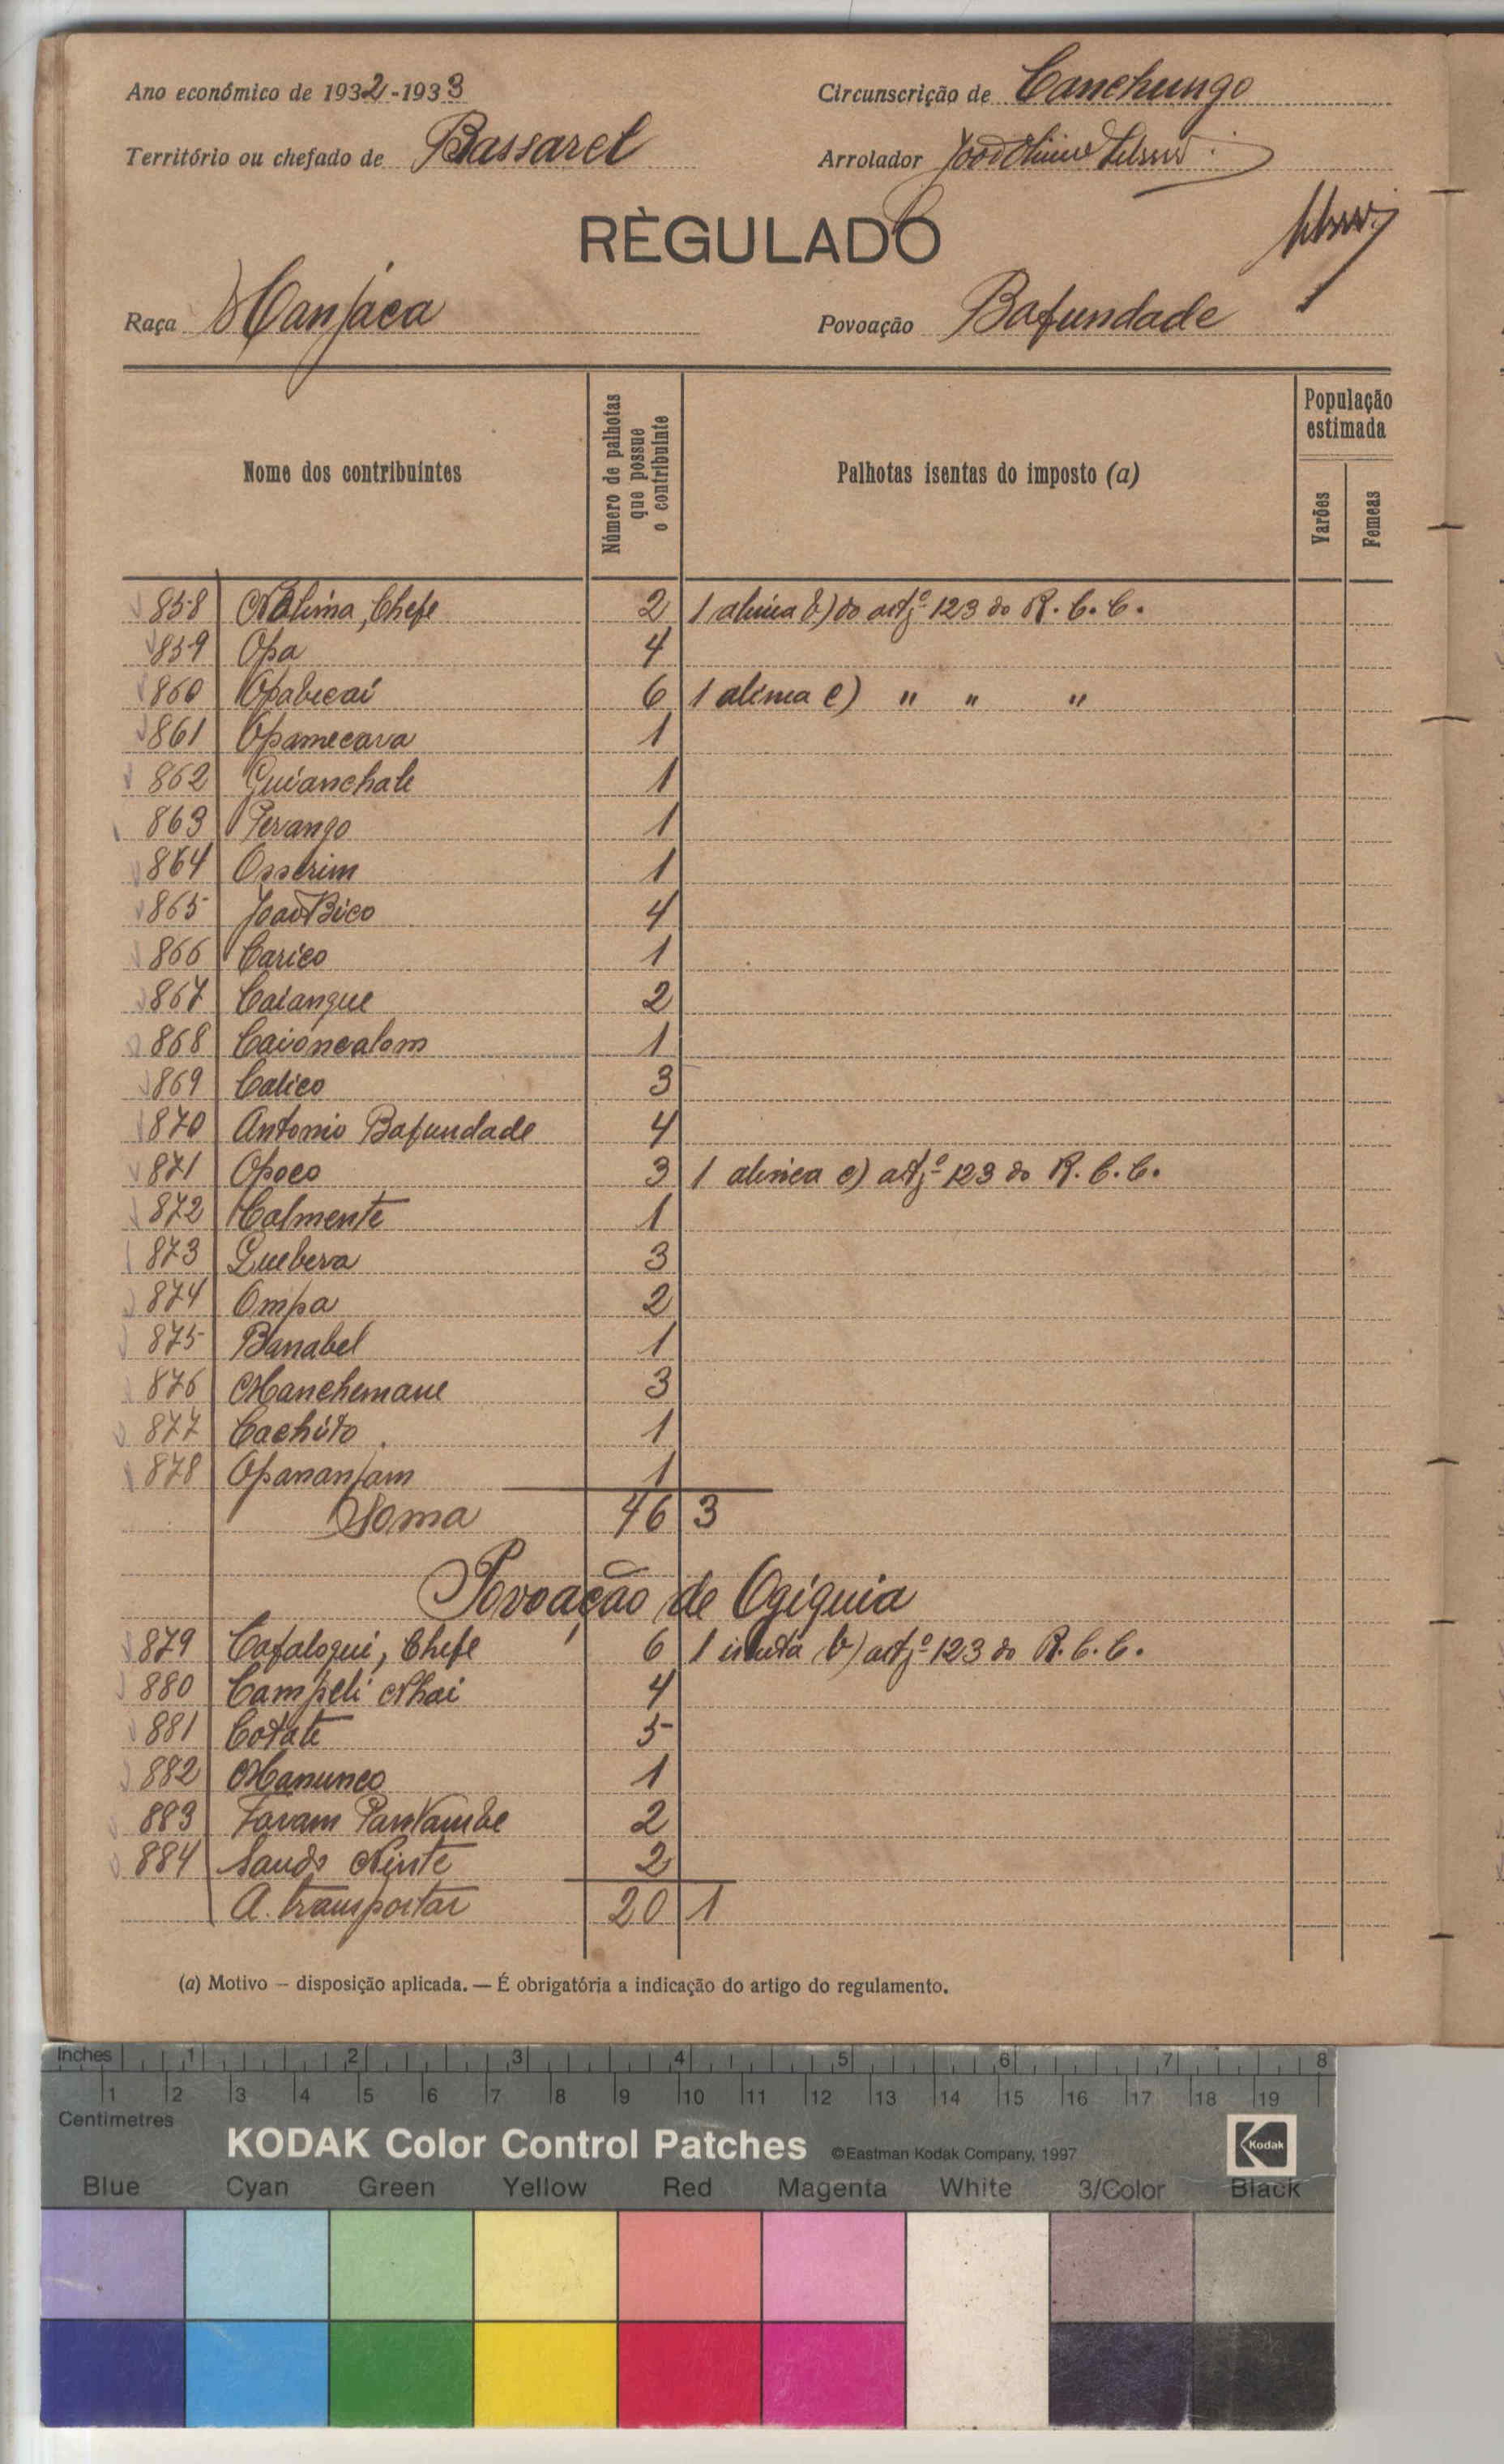 Ano económico de 1932-1933
Circunscrição de Canchungo
Território ou chefado de Bassarel
Arrolador
RÈGULADO
Raça Manjaca
Povoação Bafundade
Nome dos contribuintes
Número de palhotas que possue o contribuinte
Palhotas isentas do imposto (a)
População estimada
Varões
Femeas
858 Nalima, Chefe 2 1 alinea b) do artº 123 do R. C. C.
859 Opa 4
860 Opabicai 6 1 alinea c) " " "
861 Opamecava 1
862 Guianchale 1
863 Perango 1
864 Osserim 1
865 João Bico 4
866 Carico 1
867 Caiangue 2
868 Caioncalom 1
869 Calico 3
870 Antonio Bafundade 4
871 Opoco 3 1 alinea c) artº 123 do R. C. C.
872 Calmente 1
873 Quebera 3
874 Ompa 2
875 Banabel 1
876 Manchemaue 3
877 Cachito 1
878 Opananjam 1
Soma 46 3
Povoação de Ogiguia
879 Cafalogui, Chefe 6 1 b) artº 123 do R. C. C.
880 Campeli Nhai 4
881 Cotate 5
882 Manunco 1
883 Favam Pantambe 2
884 Saudo Ninte 2
A transportar 20 1
(a) Motivo — disposição aplicada. — É obrigatória a indicação do artigo do regulamento.
Inches 1 2 3 4 5 6 7 8
1 2 3 4 5 6 7 8 9 10 11 12 13 14 15 16 17 18 19
Centimetres
KODAK Color Control Patches ©Eastman Kodak Company, 1997 Kodak
Blue Cyan Green Yellow Red Magenta White 3/Color Black